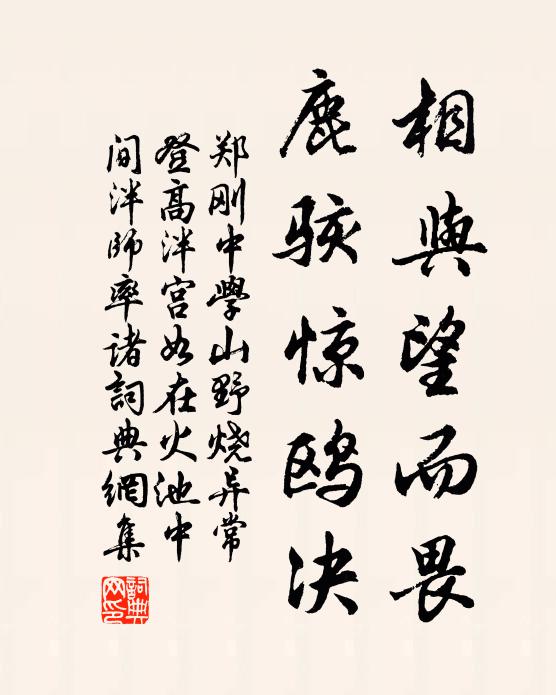 相與望而畏
鹿骇惊鸥决
郑刚中學山野烧异常
登高泮宫如在火池中
间泮师率诸詞典網集
詞典网印